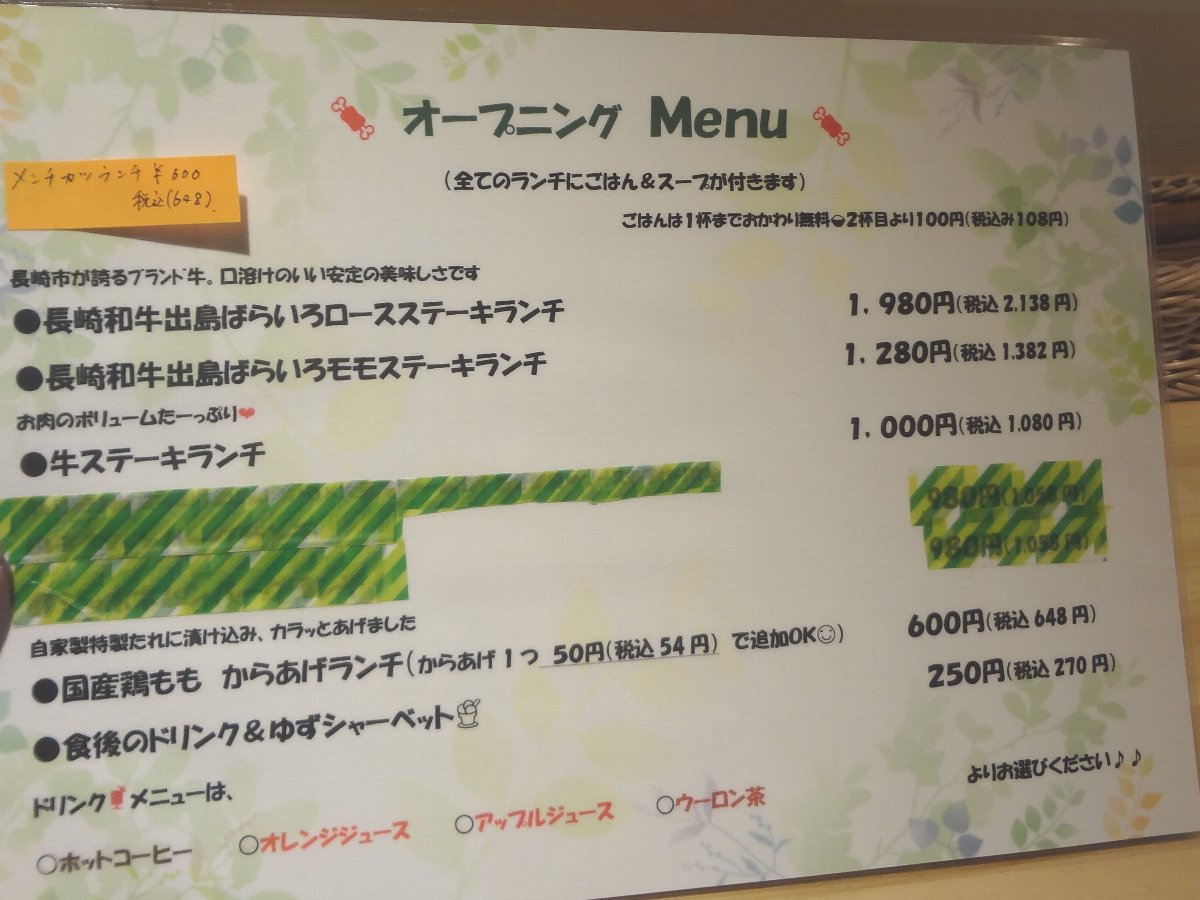 オープニング Menu
メンチカツランチ ¥600
税込(648)
(全てのランチにごはん&スープが付きます)
ごはんは1杯までおかわり無料 2杯目より100円(税込み108円)
長崎市が誇るブランド牛。口溶けのいい安定の美味しさです
●長崎和牛出島ばらいろロースステーキランチ 1,980円(税込 2,138円)
●長崎和牛出島ばらいろモモステーキランチ 1,280円(税込 1,382円)
お肉のボリュームたーっぷり❤
●牛ステーキランチ 1,000円(税込 1,080円)
980円(1,058円)
980円(1,058円)
自家製特製たれに漬け込み、カラッとあげました
●国産鶏もも からあげランチ(からあげ1つ 50円(税込 54円) で追加OK☺) 600円(税込 648円)
●食後のドリンク&ゆずシャーベット 250円(税込 270円)
ドリンクメニューは、
○ホットコーヒー ○オレンジジュース ○アップルジュース ○ウーロン茶
よりお選びください♪♪